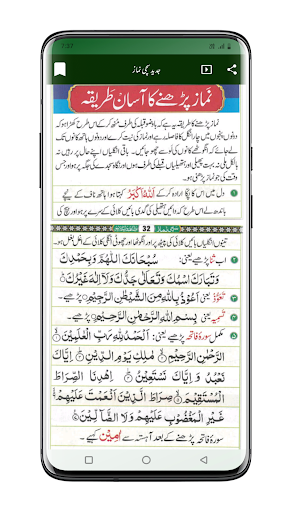 7:37
جدید سچی نماز
نماز پڑھنے کا آسان طریقہ
نماز پڑھنے کا طریقہ یہ ہے کہ باوضو قبلہ کی طرف منھ کر کے اس طرح کھڑا ہو کہ
دونوں پنجوں میں چار انگل کا فاصلہ رہے اور نماز کی نیت کرے اور دونوں ہاتھ کانوں تک
لے جائے کہ دونوں انگوٹھے کانوں کی لو سے چھو جائے۔ باقی انگلیاں اپنے حال پر رہیں نہ
بالکل ملی نہ بہت پھیلی اور ہتھیلیاں قبلے کی طرف ہوں اور نگاہ سجدہ کی جگہ پر ہو اور جس
دل میں اس کا پکا ارادہ کر کے اَللّٰہُ اَکْبَرُ کہتا ہوا ہاتھ ناف کے نیچے
باندھ لے اس طرح کہ داہنی ہتھیلی کی گدی بائیں کلائی کے سرے پر ہو اور بیچ کی
32
تینوں انگلیاں بائیں کلائی کی پیٹھ پر اور انگوٹھا اور چھنگلی کلائی کے اغل بغل ہو۔
اب ثنا پڑھے یعنی: سُبْحَانَكَ اللّٰهُمَّ وَبِحَمْدِكَ
وَتَبَارَكَ اسْمُكَ وَتَعَالٰى جَدُّكَ وَلَآ اِلٰهَ غَيْرُكَ
تعوذ یعنی اَعُوْذُ بِاللّٰهِ مِنَ الشَّيْطٰنِ الرَّجِيْمِ
تسمیہ یعنی بِسْمِ اللّٰهِ الرَّحْمٰنِ الرَّحِيْمِ پڑھے۔
مکمل سورۂ فاتحہ پڑھے یعنی: اَلْحَمْدُ لِلّٰهِ رَبِّ الْعٰلَمِيْنَ
الرَّحْمٰنِ الرَّحِيْمِ مٰلِكِ يَوْمِ الدِّيْنِ اِيَّاكَ
نَعْبُدُ وَاِيَّاكَ نَسْتَعِيْنُ اِهْدِنَا الصِّرَاطَ
الْمُسْتَقِيْمَ صِرَاطَ الَّذِيْنَ اَنْعَمْتَ عَلَيْهِمْ
غَيْرِ الْمَغْضُوْبِ عَلَيْهِمْ وَلَا الضَّآلِّيْنَ
سورۂ فاتحہ پڑھنے کے بعد آہستہ سے اٰمِیْن کہے۔